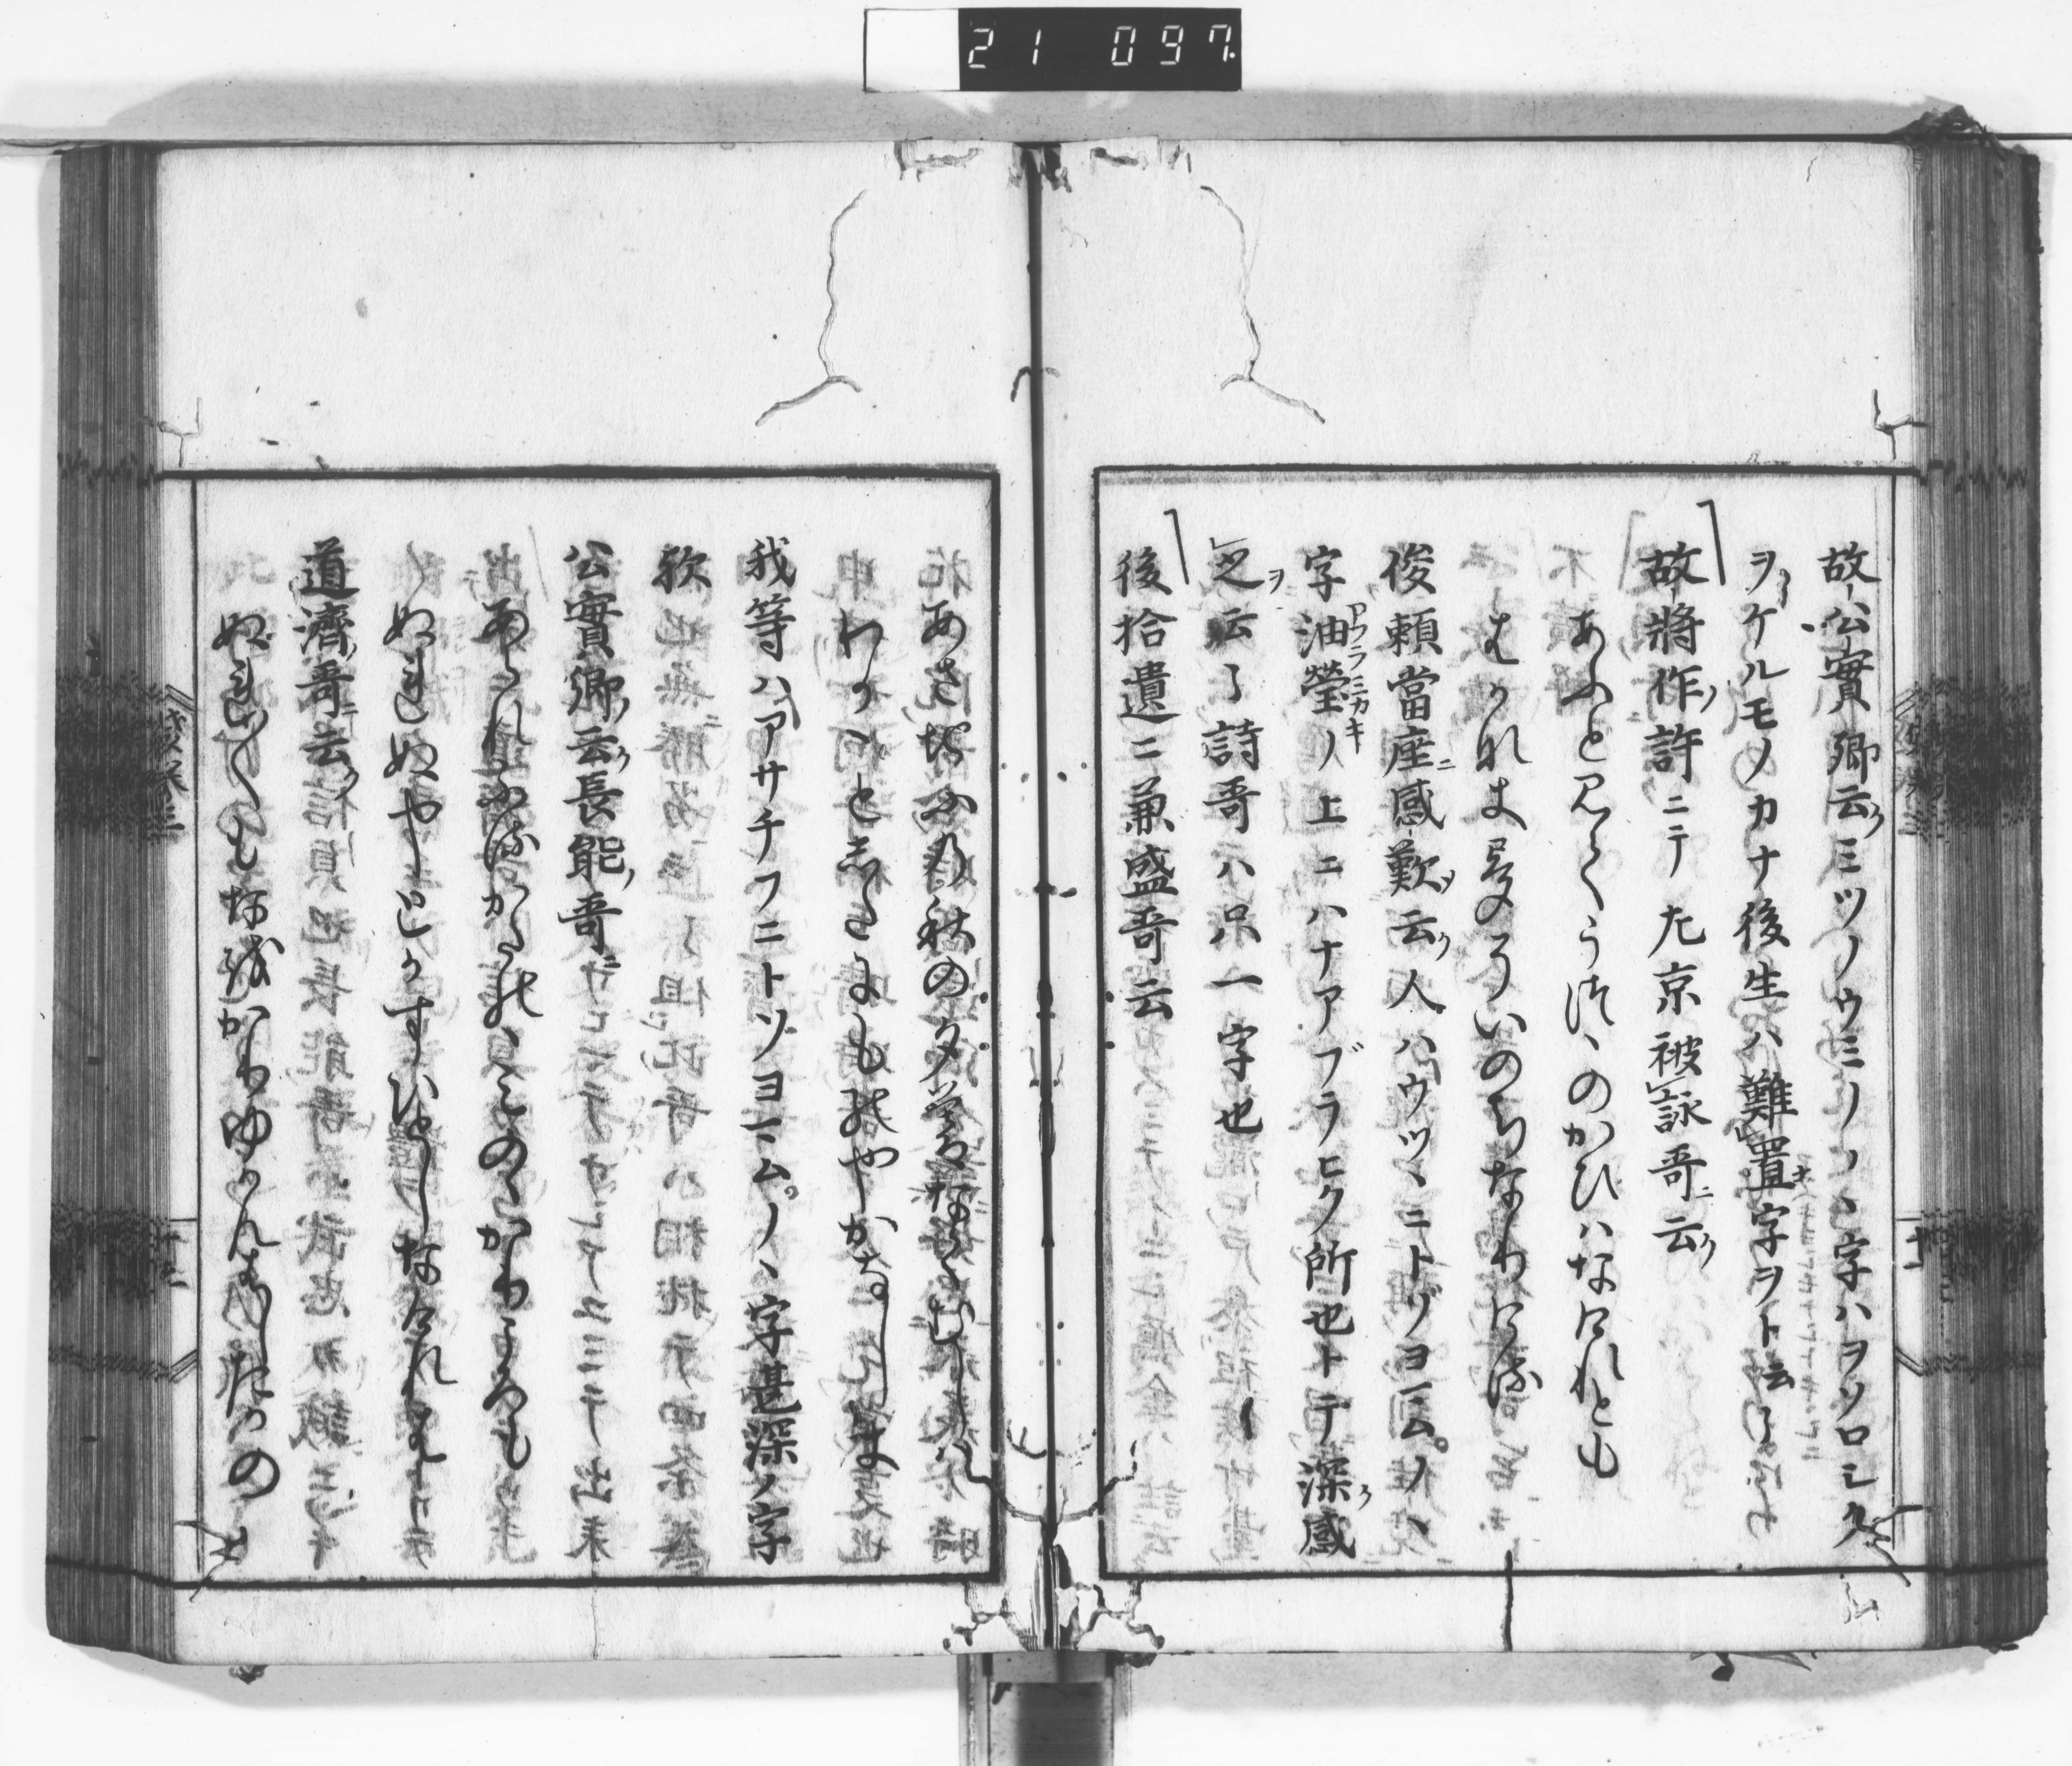 21 097
故公實卿云ミツノウミノヽ字ハヲソロシク
ヲケルモノカナ後生ハ難置字ヲト云了
故將作許ニテ左京被詠哥云
あふと見てうつゝのかひハなけれとも
はかなき夢そいのちなりける
俊頼當座感歎云人ハウツヽニトゾヨマム。ノヽ
字油瑩ノ上ニハナアブラヒク所也トテ深感
之云了詩哥ハ只一字也
後拾遺ニ兼盛哥云
あさちふの秋の夕暮なくむしハ
わかことしたにものやかなしき
我等ハアサチフニトソヨマム。ノヽ字甚深ノ字
歟
公實卿云長能哥
あられふるかたのゝみのゝかりころも
ぬれぬやとかすひとしなけれは
道濟哥云
ぬれ〳〵もなをかりゆかんはしたかの